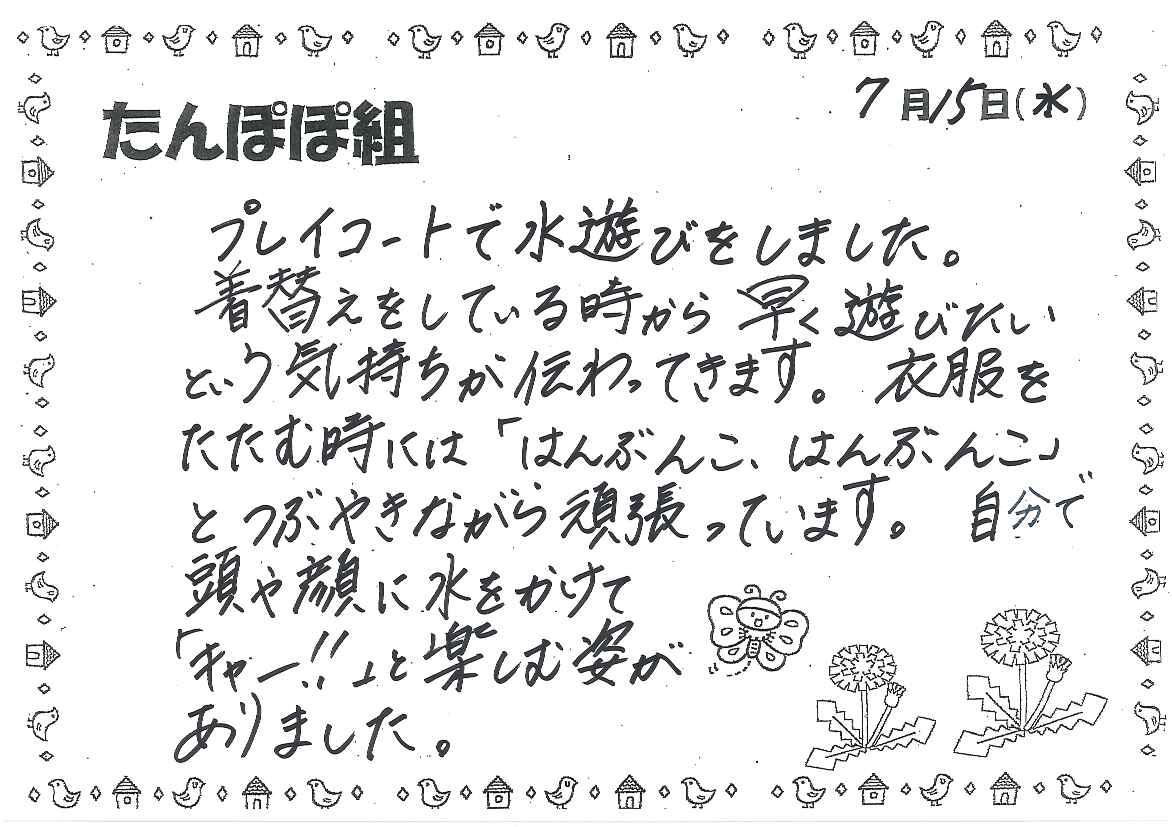 7月15日(水)
たんぽぽ組
プレイコートで水遊びをしました。
着替えをしている時から早く遊びたい
という気持ちが伝わってきます。衣服を
たたむ時には「はんぶんこ、はんぶんこ」
とつぶやきながら頑張っています。自分で
頭や顔に水をかけて
「キャー!!」と楽しむ姿が
ありました。